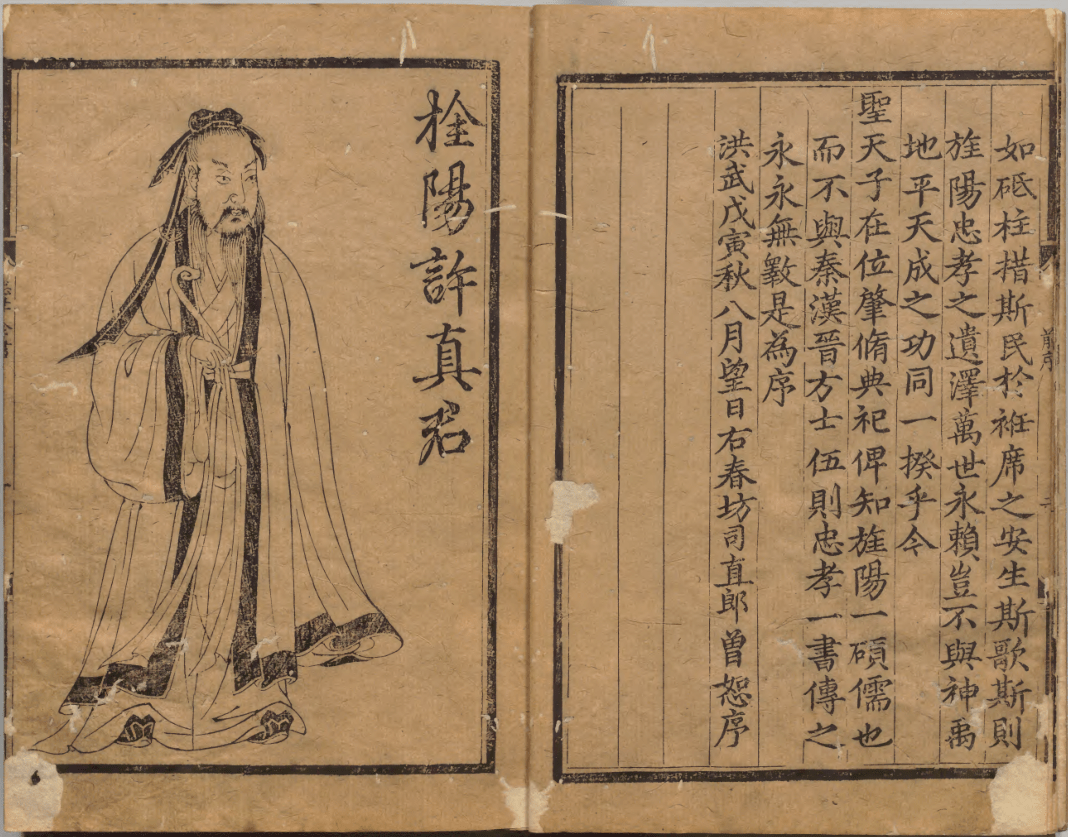 前序
如砥柱措斯民於袵席之安生斯歌斯則
旌陽忠孝之遺澤萬世永賴豈不與神禹
地平天成之功同一揆乎今
聖天子在位肇脩典祀俾知旌陽一碩儒也
而不與秦漢晉方士伍則忠孝一書傳之
永永無斁是為序
洪武戊寅秋八月望日右春坊司直郎曾恕序
旌陽許真君